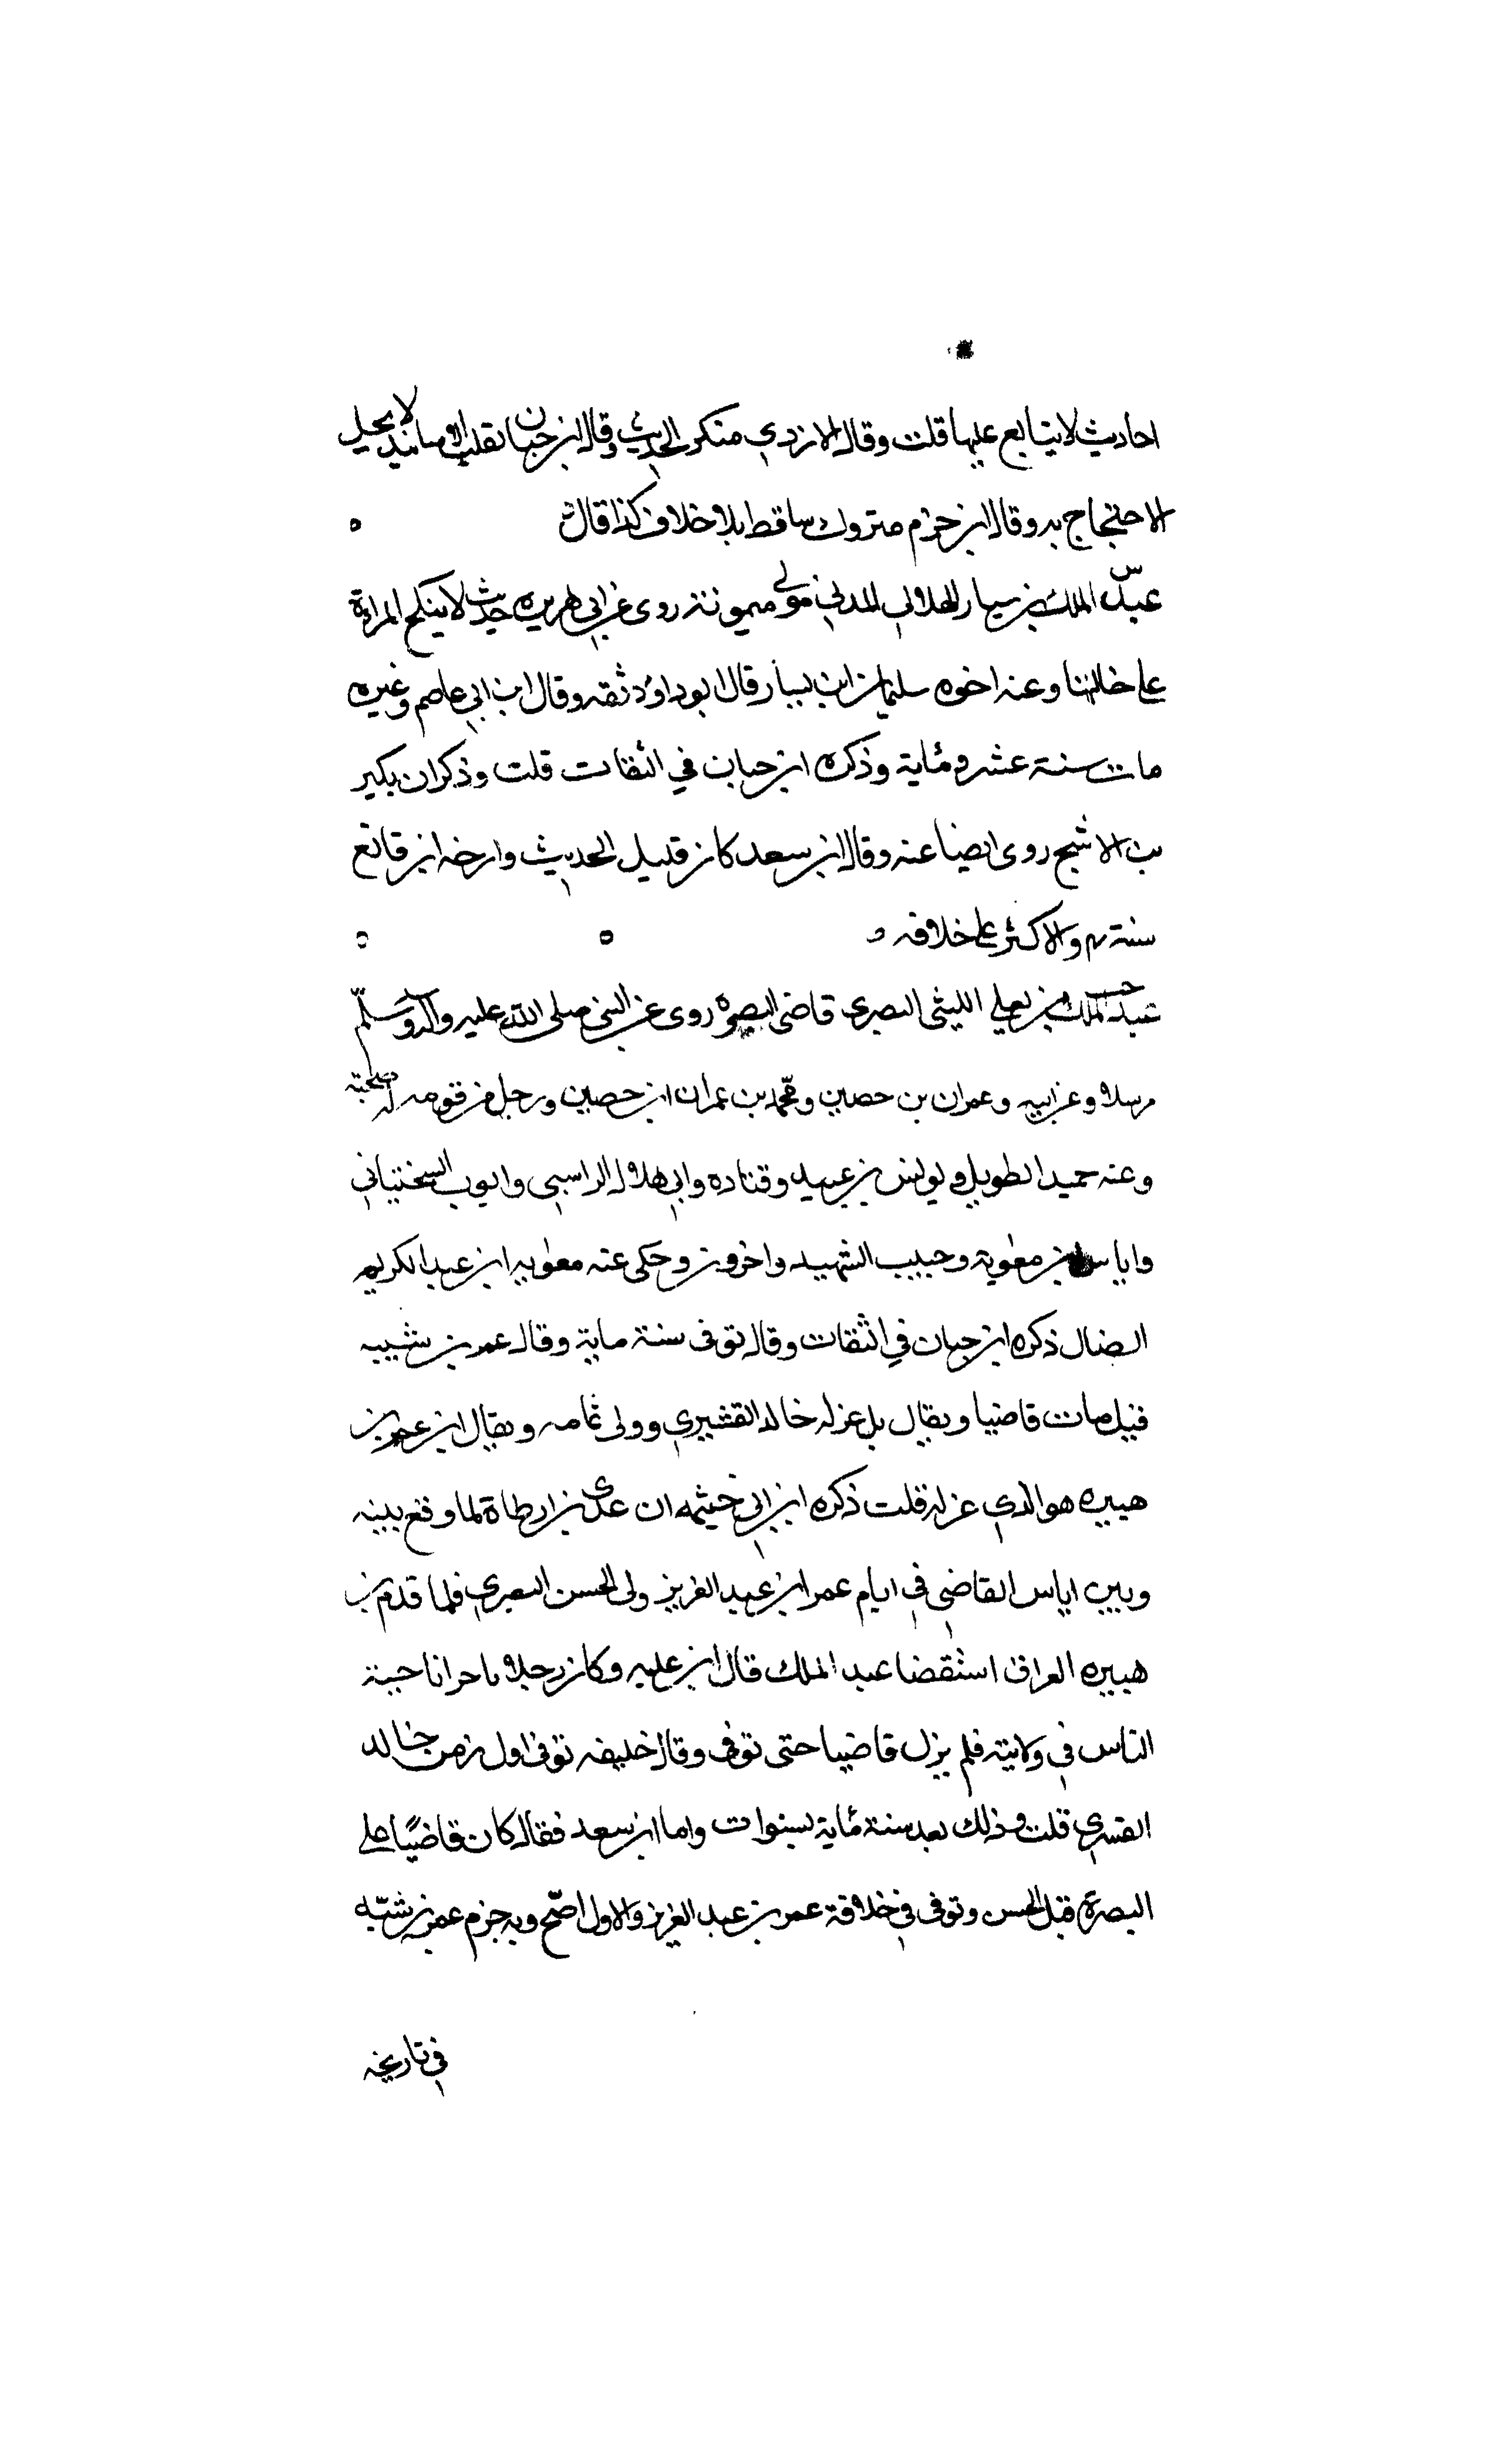 احاديث لا يتابع عليها قلت وقال الازدي منكر الحديث وقال ابن حبان يقلب الاسانيد لا يحل
الاحتجاج به وقال ابن حزم متروك ساقط بلا خلاف كذا قال
س
عبد الملك بن يسار الهلالي المدني مولى ميمونة روى عن ابي هريره حديث لا ينكح المراءة
على خالتها وعنه اخوه سليمان ابن يسار قال ابو داود ثقه وقال ابن ابي عاصم وغيره
مات سنة عشر ومائة وذكره ابن حبان في الثقات قلت وذكر ان بكير
بن الاشج روى ايضا عنه وقال ابن سعد كان قليل الحديث وارخه ابن قانع
سنة والاكثر على خلافه
خت
عبد الملك بن يعلي الليثي البصري قاضي البصره روى عن النبي صلى الله عليه واله وسلّم
مرسلا وعن ابيه وعمران بن حصين ومحمد بن عمران ابن حصين ورجل من قومه له صحبة
وعنه حميد الطويل ويونس بن عبيد وقتاده وابي هلال الراسبي وايوب السختياني
واياس بن معوية وحبيب الشهيد واخرون وحكى عنه معويه ابن عبد الكريم
الضال ذكره ابن حبان في الثقات وقال توفى سنة ماية وقال عمر بن شيبه
قيل مات قاضيا ويقال بل عزله خالد القشيري وولى ثمامه ويقال ابن عمر بن
هبيره هو الذي عزله قلت ذكره ابن ابي خيثمه ان عدى بن ارطاة لما وقع بينه
وبين اياس القاضي في ايام عمر ابن عبد العزيز ولى الحسن البصري فلما قدم بن
هبيره العراق استقضا عبد الملك قال ابن عليه وكان رجلا
الناس في ولايته فلم يزل قاضيا حتى توفى وقال خليفه توفى اول زمن خالد
القسري قلت وذلك بعد سنة مائة بسنوات واما ابن سعد فقال كان قاضيًا على
البصرة قبل الحسن وتوفى في خلافة عمر بن عبد العزيز والاول اصحّ وبه جزم عمر بن شبّه
في تاريخه